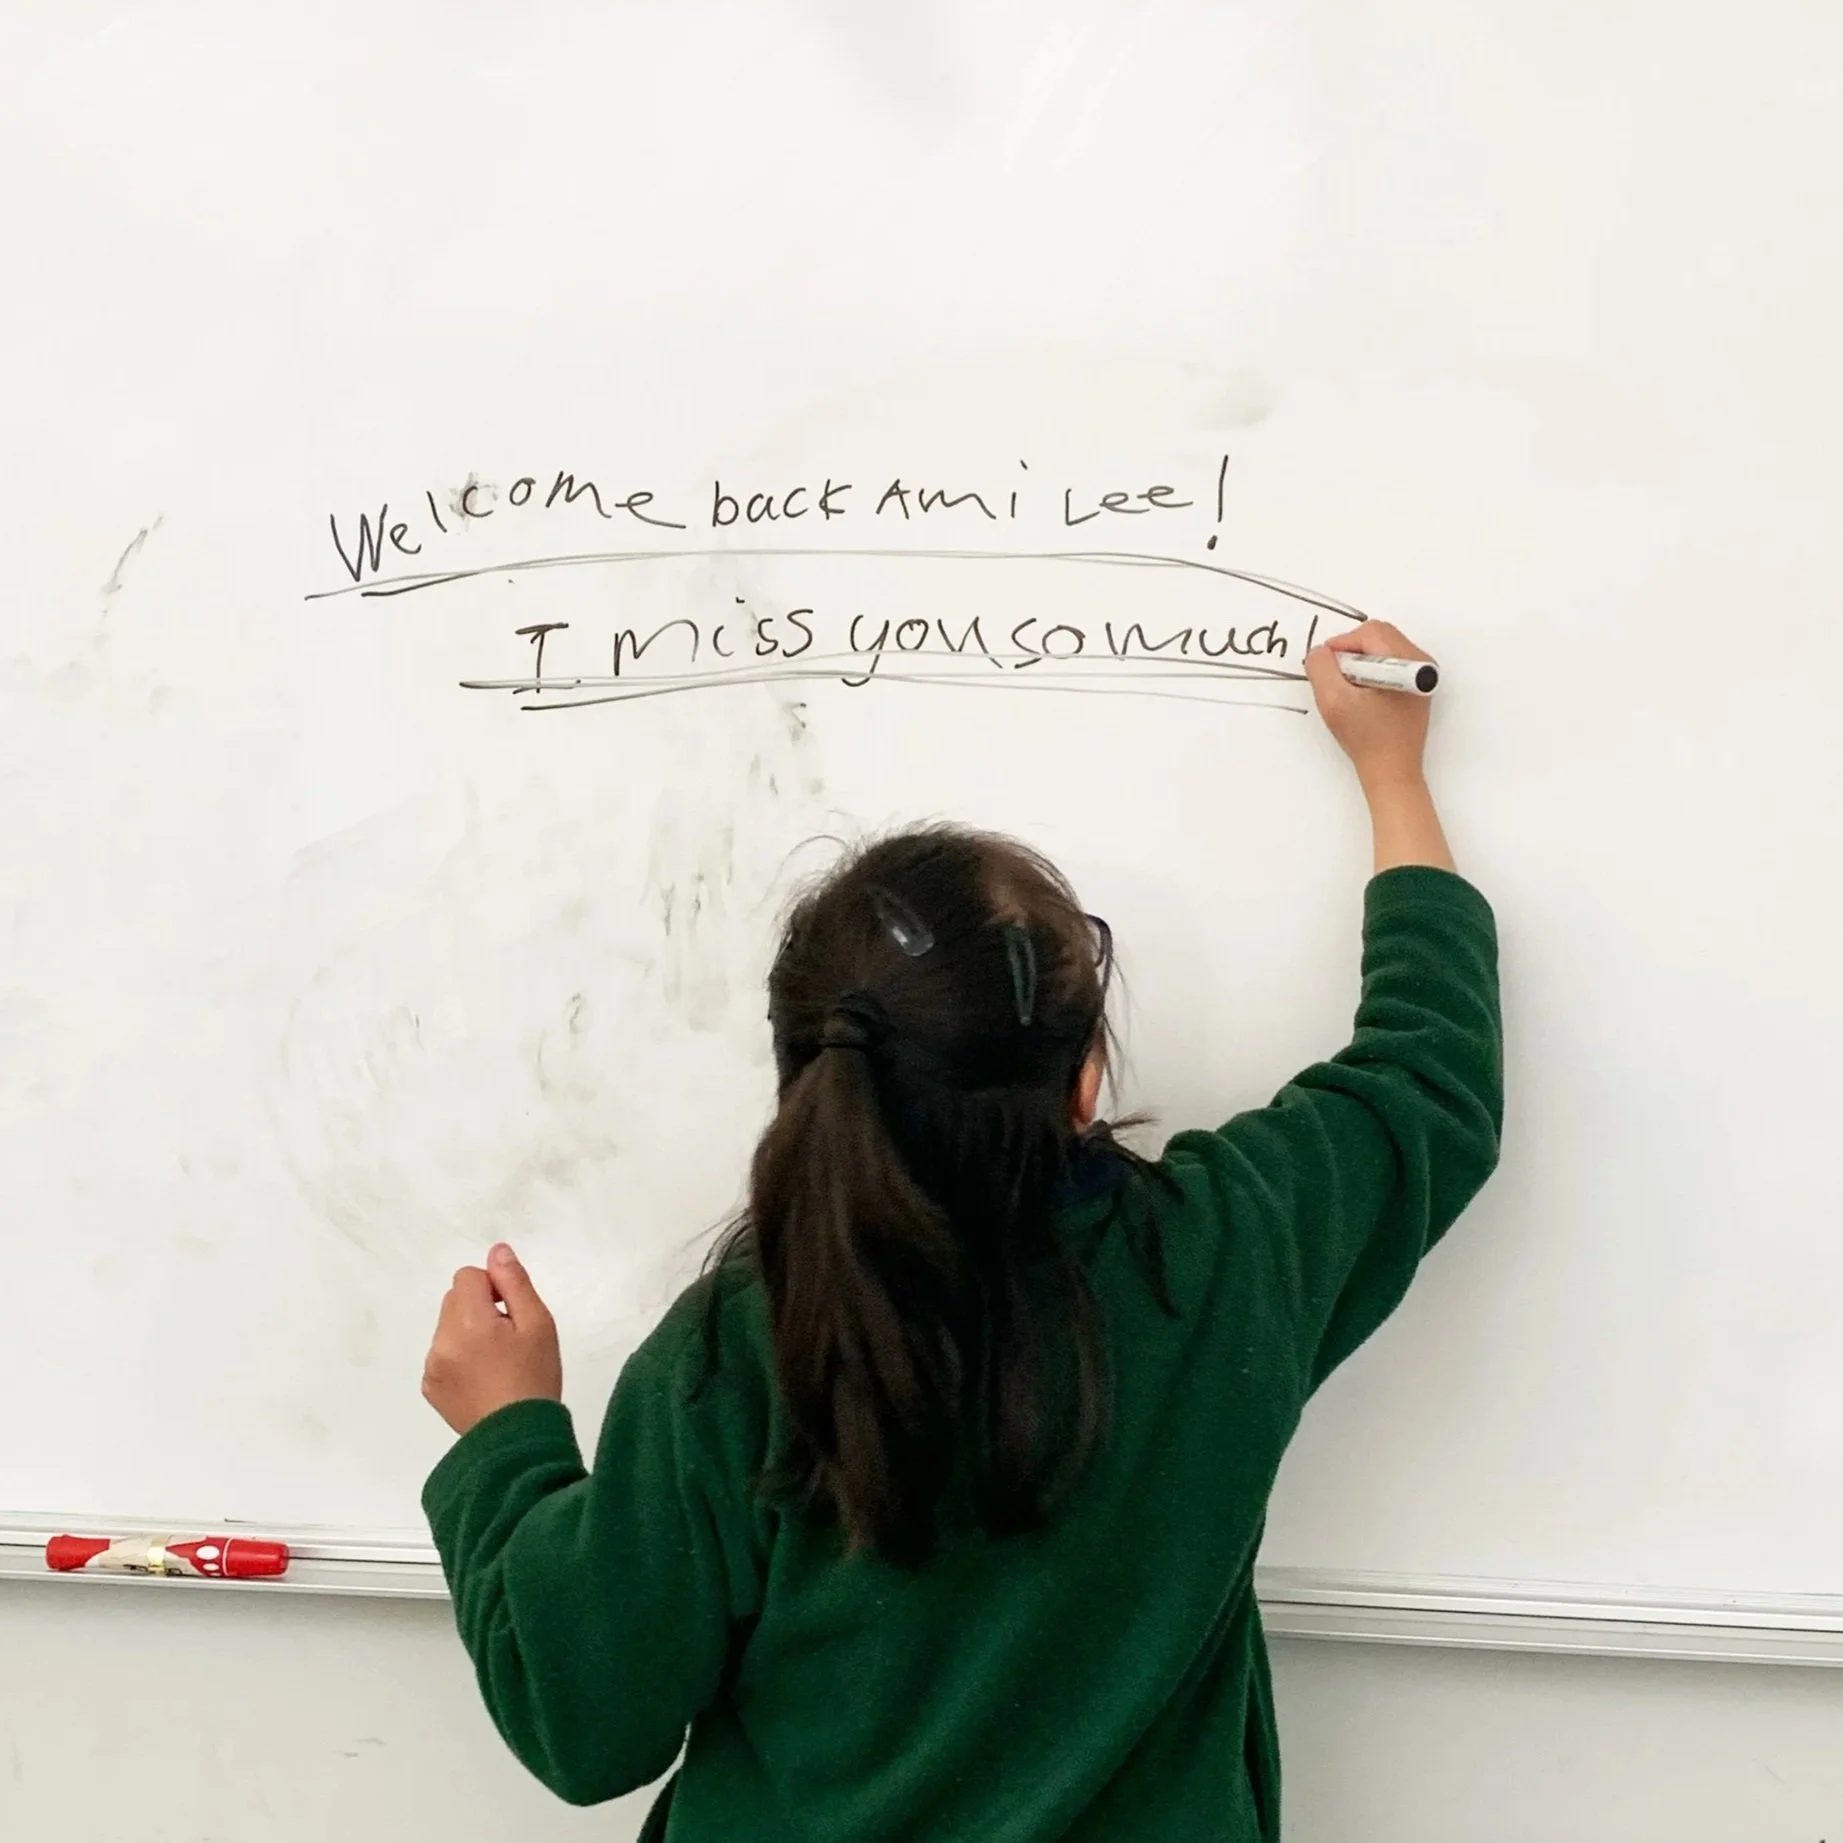 Welcome back Ami Lee!
I miss you so much!